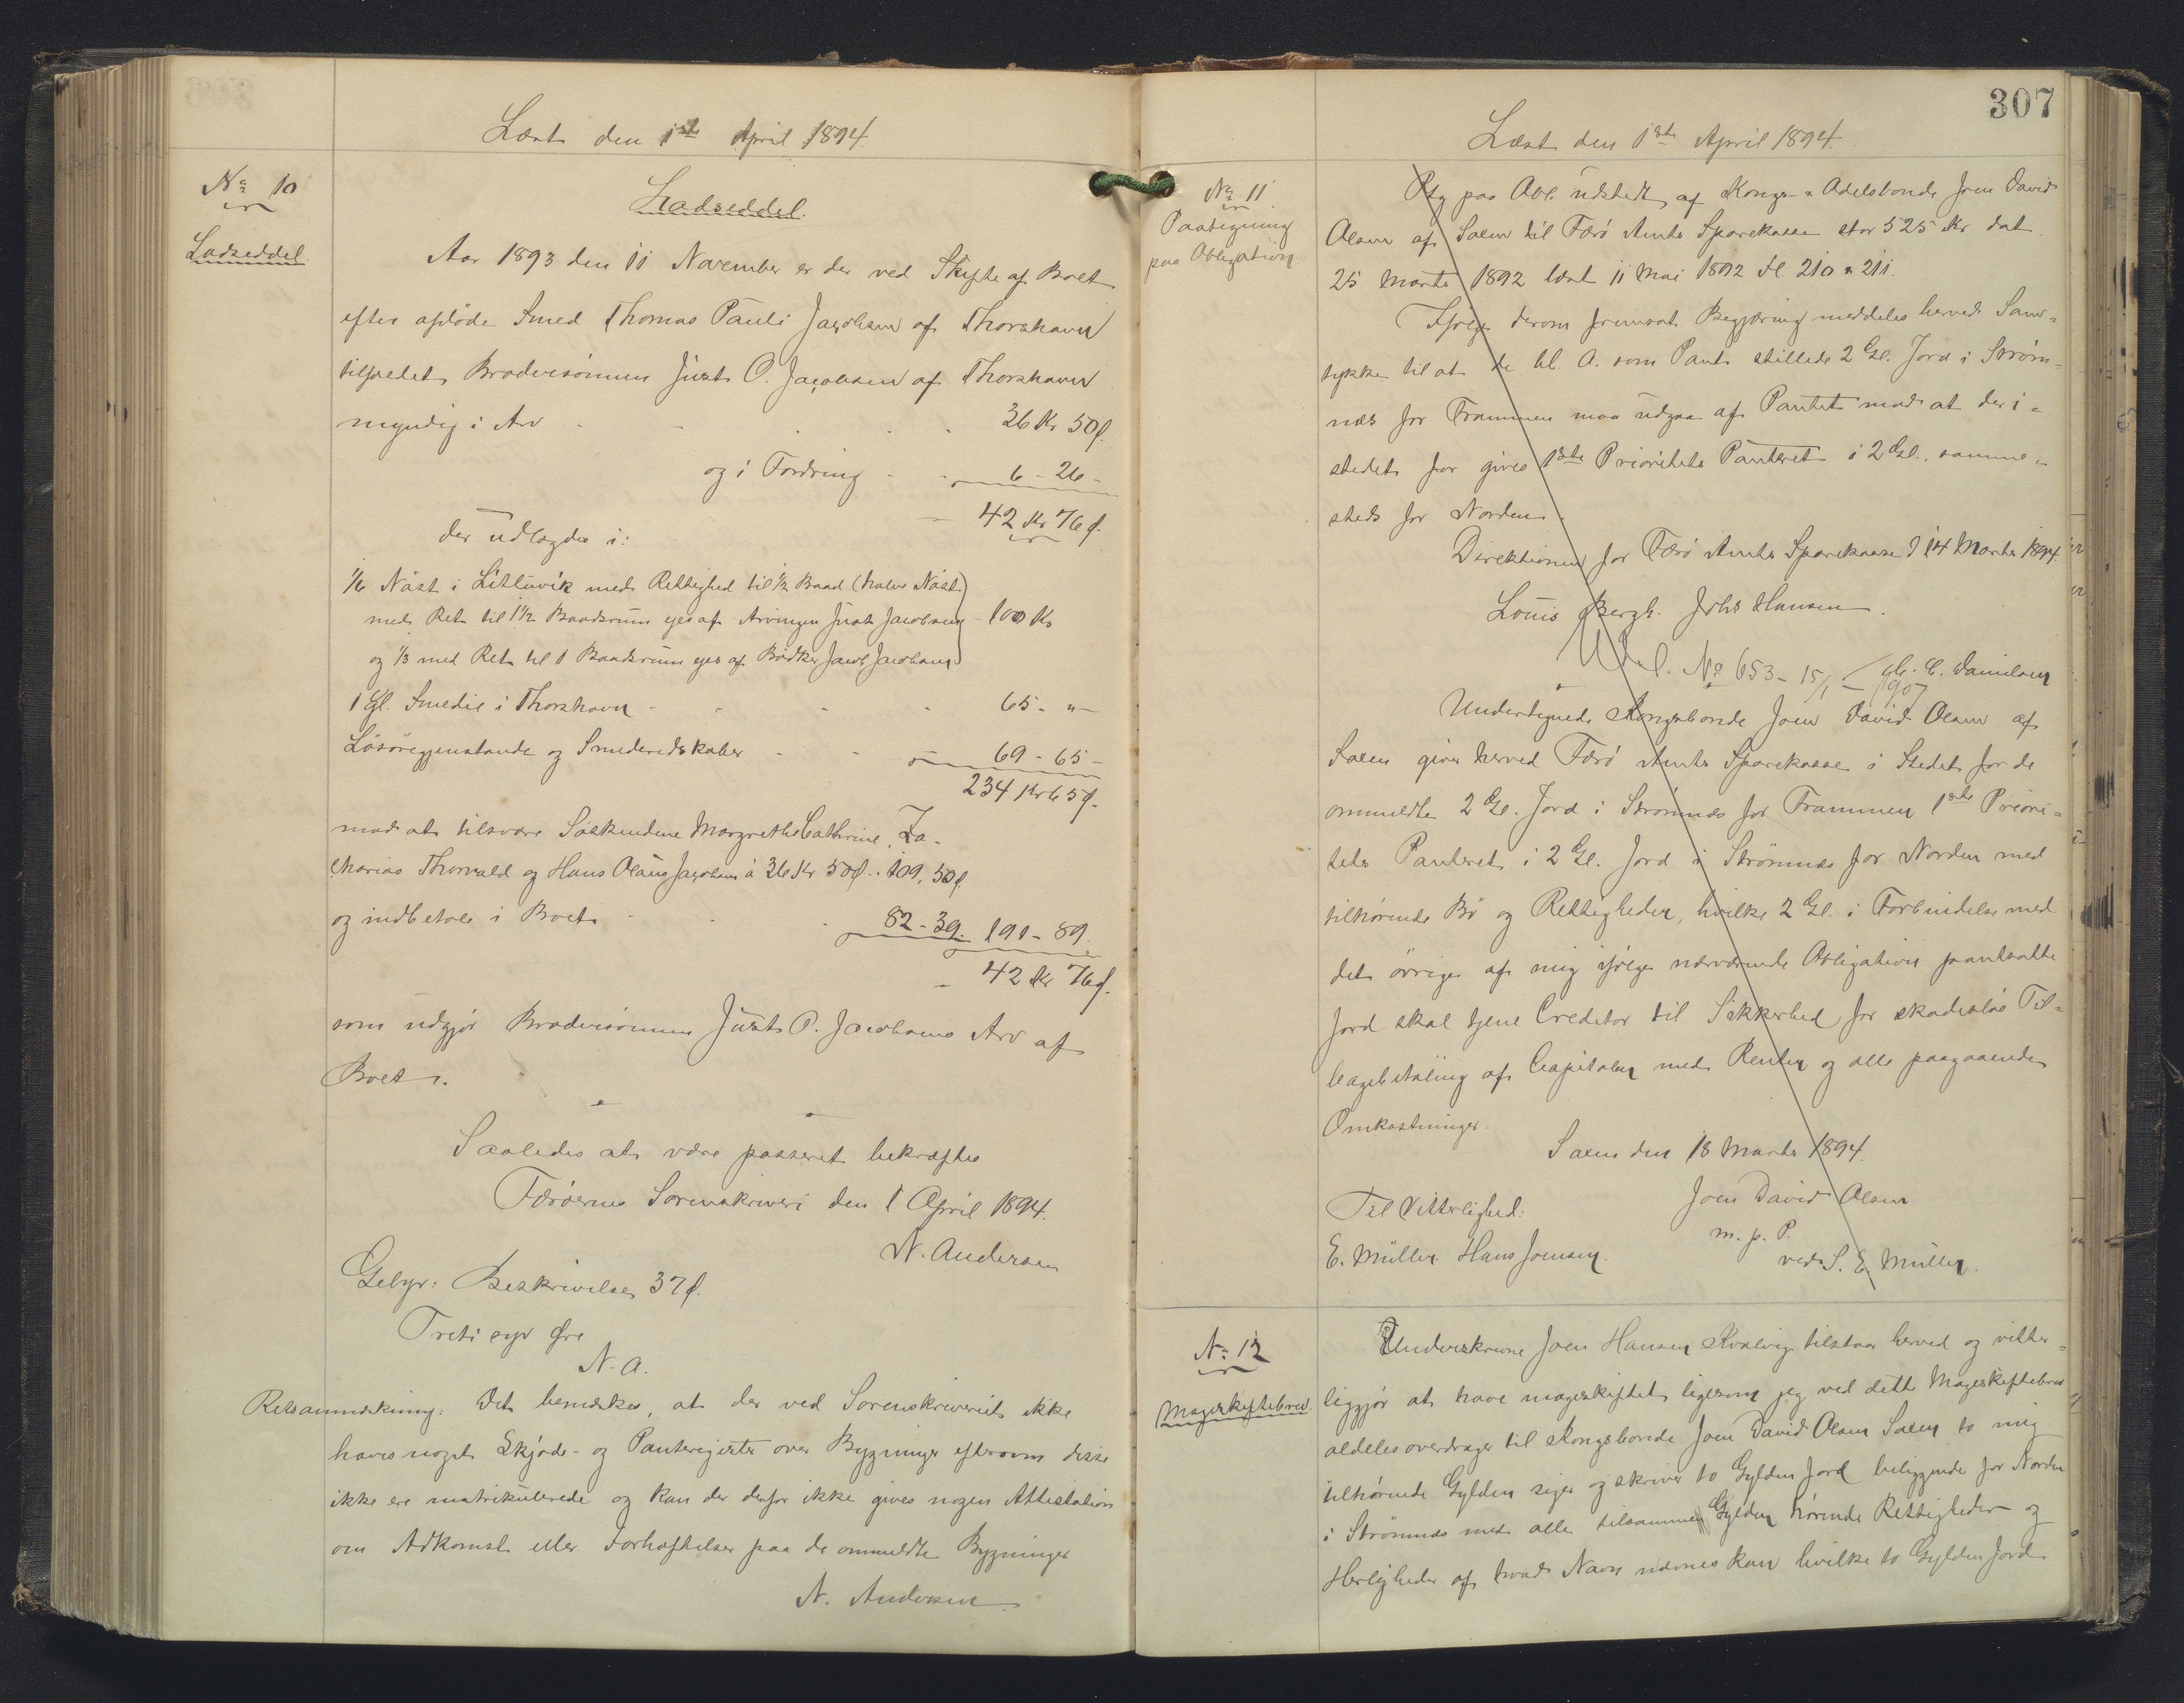 Læst den 1ste April 1894.
No 10
Lodseddel.
Lodseddel.
Aar 1893 den 11 November er der ved Skifte af Boet
efter afdöde Smed Thomas Pauli Jacobsen af Thorshavn
tilfaldet Brodersönnen Just O. Jacobsen af Thorshavn
myndig i Arv - - - - 36 Kr 50 ø.
og i Fordring - - 6 - 26 -
- 42 Kr 76 ø.
der udlagdes i:
1/6 Nöst i Litluvik med Rettighed til 1/2 Baad (halve Nöst
med Ret til 1 1/2 Baadsrum ejes af Arvingen Just Jacobsen - 100 Kr
og 1/3 med Ret til 1 Baadsrum ejes af Bödker Jacob Jacobsen)
1 Gl. Smedie i Thorshavn - - - 65 - " -
Lösöregjenstande og Smederedskaber - - - 69 - 65 -
234 Kr 65 ø.
mod at tilsvare Söskendene Margrethe Cathrine, Za-
charias Thorvald og Hans Olaus Jacobsen à 36 Kr 50 ø. . 109, 50 ø.
og indbetale i Boet - - - 82 - 39. 191 - 89.
- 42 Kr 76 ø.
som udgjør Brodersönnen Just O. Jacobsens Arv af
Boet.
Saaledes at være passeret bekræftes
Færöernes Sorenskriveri den 1 April 1894.
N. Andersen
Gebyr: Beskrivelse 37 ø.
Treti syv Øre
N. A.
Retsanmærkning: Det bemærkes, at der ved Sorenskriveriet ikke
haves noget Skjøde- og Panteregister over Bygninger eftersom disse
ikke ere matrikulerede og kan der derfor ikke gives nogen Attestation
om Adkomst eller Forhæftelser paa de ommeldte Bygninger
N. Andersen
307
Læst den 1ste April 1894.
No 11
Paategning
paa Obligation
Ptg paa Obl. udstedt af Kongs- & Odelsbonde Joen David
Olsen af Saxen til Færö Amts Sparekasse stor 525 Kr dat.
25 Marts 1892 læst 11 Mai 1892 Fl. 210 & 211.
Ifølge derom fremsat Begjæring meddeles herved Sam-
tykke til at de bl. A. som Pant stillede 2 Gl. Jord i Strøm-
næs for Frammen maa udgaa af Pantet mod at der i-
stedet for gives 1ste Prioritets Panteret i 2 Gl. samme-
steds for Norden.
Direktionen for Færö Amts Sparekasse d 14 Marts 1894.
Louis Bergh. Johs Hansen.
Udsl. No 653 - 15/1 - 1907 C. Danielsen
Undertegnede Kongsbonde Joen David Olsen af
Saxen giver herved Færö Amts Sparekasse i Stedet for de
ommeldte 2 Gl. Jord i Strömnæs for Frammen 1ste Priori-
tets Panteret i 2 Gl. Jord i Strömnæs for Norden med
tilhörende Bö og Rettigheder, hvilke 2 Gl. i Forbindelse med
det övrige af mig ifölge nærværende Obligation pantsatte
Jord skal tjene Creditor til Sikkerhed for skadeslös Til-
bagebetaling af Capitalen med Renter og alle paagaaende
Omkostninger.
Saxen den 18 Marts 1894.
Til Vitterlighed:
Joen David Olsen
m. p. P.
E. Müller. Hans Joensen.
ved S. E. Müller.
No 12
Mageskiftebrev
Underskrevne Joen Hansen Kvalvig tilstaar herved og vitter-
liggjør at have mageskiftet ligesom jeg ved dette Mageskiftebrev
aldeles overdrager til Kongsbonde Joen David Olsen Saxen to mig
tilhörende Gylden siger og skriver to Gylden Jord beliggende for Norden
i Strömnæs med alle tilsammen Gylden hörende Rettigheder og
Herligheder af hvad Navn nævnes kan hvilke to Gylden Jord